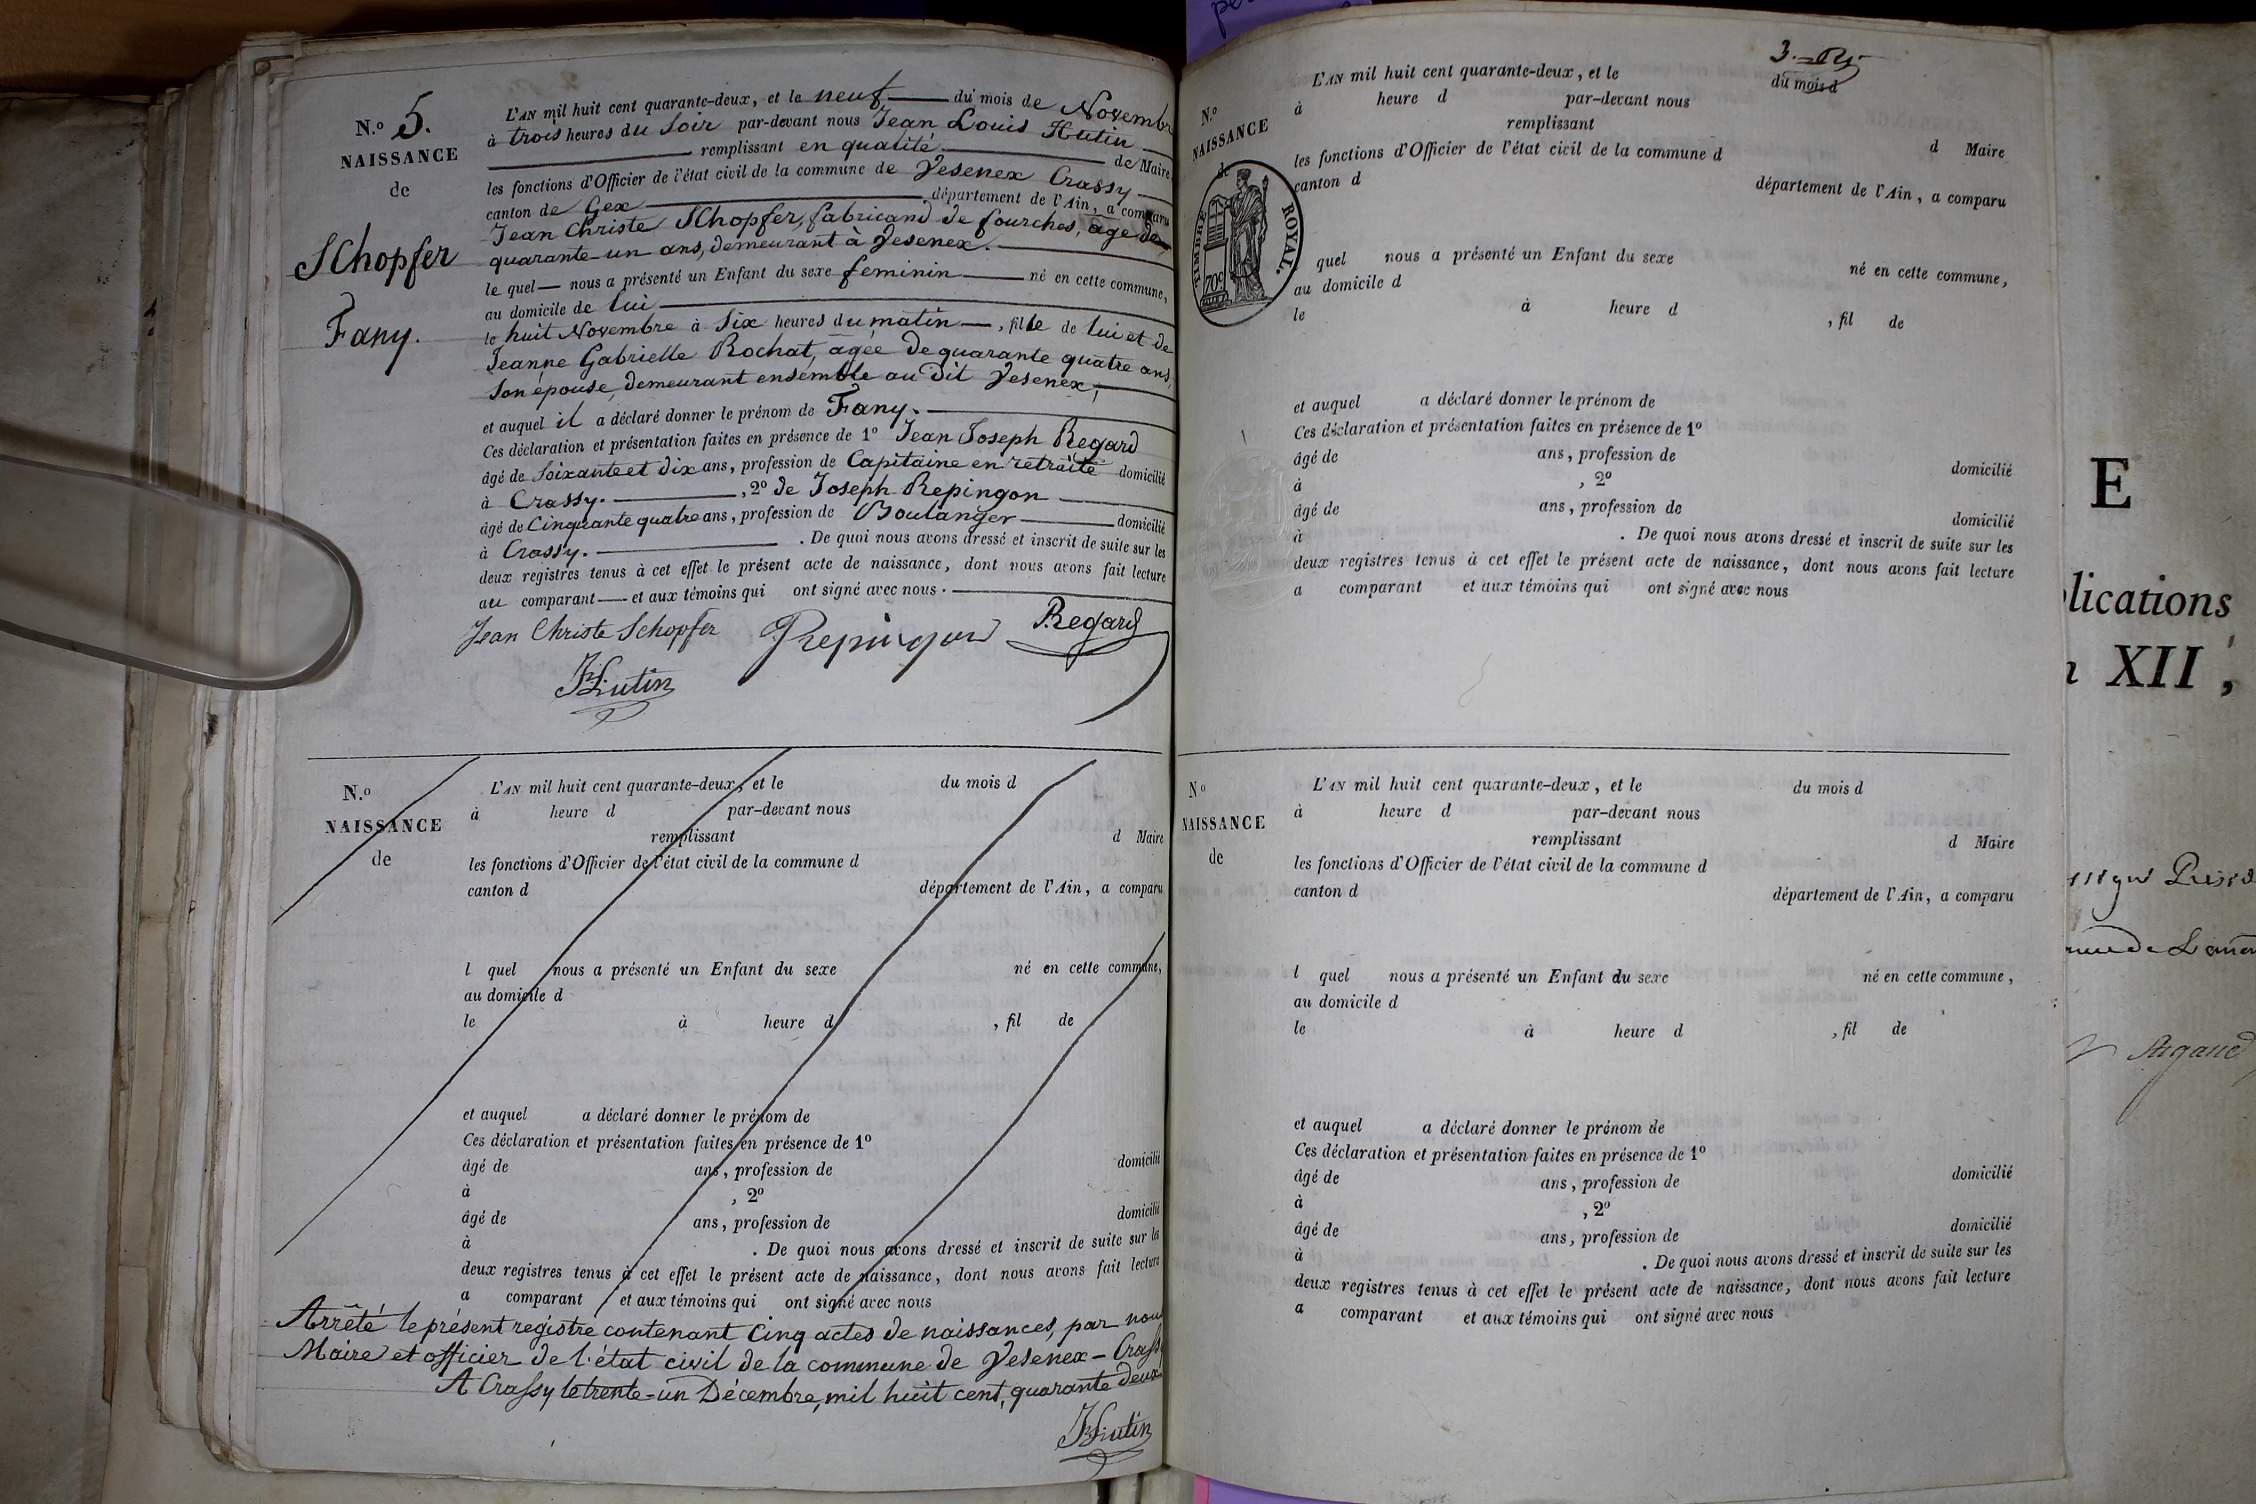 N.o 5.
NAISSANCE
de
Schopfer
Fany.
L'AN mil huit cent quarante-deux, et le neuf du mois de Novembre
à trois heures du Soir par-devant nous Jean Louis Hutin
remplissant en qualité de Maire
les fonctions d'Officier de l'état civil de la commune de Vesenex Crassy
canton de Gex département de l'Ain, a comparu
Jean Christe Schopfer, fabricand de fourches, age de
quarante-un ans, demeurant à Vesenex.
le quel nous a présenté un Enfant du sexe feminin né en cette commune,
au domicile de lui
le huit Novembre à Six heures du matin, fille de lui et de
Jeanne Gabrielle Rochat, agée de quarante quatre ans,
Son épouse, demeurant ensemble au dit Vesenex,
et auquel il a déclaré donner le prénom de Fany.
Ces déclaration et présentation faites en présence de 1o Jean Joseph Regard
âgé de Soixante et dix ans, profession de Capitaine en retraite domicilié
à Crassy. , 2o de Joseph Repingon
âgé de Cinquante quatre ans, profession de Boulanger domicilié
à Crassy. . De quoi nous avons dressé et inscrit de suite sur les
deux registres tenus à cet effet le présent acte de naissance, dont nous avons fait lecture
au comparant et aux témoins qui ont signé avec nous.
Jean Christe Schopfer Repingon Regard
JL. Hutin
N.o
NAISSANCE
de
L'AN mil huit cent quarante-deux, et le du mois d
à heure d par-devant nous
remplissant d Maire
les fonctions d'Officier de l'état civil de la commune d
canton d département de l'Ain, a comparu
l quel nous a présenté un Enfant du sexe né en cette commune,
au domicile d
le à heure d , fil de
et auquel a déclaré donner le prénom de
Ces déclaration et présentation faites en présence de 1o
âgé de ans, profession de domicilié
à , 2o
âgé de ans, profession de domicilié
à . De quoi nous avons dressé et inscrit de suite sur les
deux registres tenus à cet effet le présent acte de naissance, dont nous avons fait lecture
a comparant et aux témoins qui ont signé avec nous
Arrêté le présent registre contenant Cinq actes de naissances, par nous
Maire et officier de l'état civil de la commune de Vesenex - Crassy
A Crassy le trente-un Décembre, mil huit cent, quarante deux
JL. Hutin
3.
N.o
NAISSANCE
de
TIMBRE ROYAL.
70c
L'AN mil huit cent quarante-deux, et le du mois d
à heure d par-devant nous
remplissant d Maire
les fonctions d'Officier de l'état civil de la commune d
canton d département de l'Ain, a comparu
quel nous a présenté un Enfant du sexe né en cette commune,
au domicile d
le à heure d , fil de
et auquel a déclaré donner le prénom de
Ces déclaration et présentation faites en présence de 1o
âgé de ans, profession de domicilié
à , 2o
âgé de ans, profession de domicilié
à . De quoi nous avons dressé et inscrit de suite sur les
deux registres tenus à cet effet le présent acte de naissance, dont nous avons fait lecture
a comparant et aux témoins qui ont signé avec nous
No
NAISSANCE
de
L'AN mil huit cent quarante-deux, et le du mois d
à heure d par-devant nous
remplissant d Maire
les fonctions d'Officier de l'état civil de la commune d
canton d département de l'Ain, a comparu
l quel nous a présenté un Enfant du sexe né en cette commune,
au domicile d
le à heure d , fil de
et auquel a déclaré donner le prénom de
Ces déclaration et présentation faites en présence de 1o
âgé de ans, profession de domicilié
à , 2o
âgé de ans, profession de domicilié
à . De quoi nous avons dressé et inscrit de suite sur les
deux registres tenus à cet effet le présent acte de naissance, dont nous avons fait lecture
a comparant et aux témoins qui ont signé avec nous
E
lications
XII,